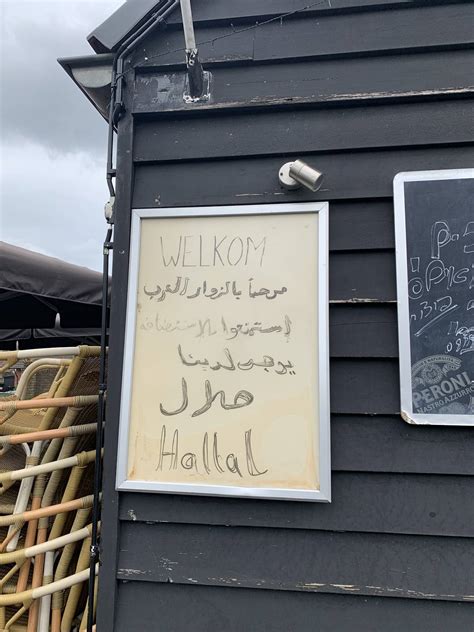 WELKOM
مرحباً بالزوار العرب
استمتعوا بالاستضافة
يوجد لدينا
حلال
Hallal
PERONI
NASTRO AZZURRO